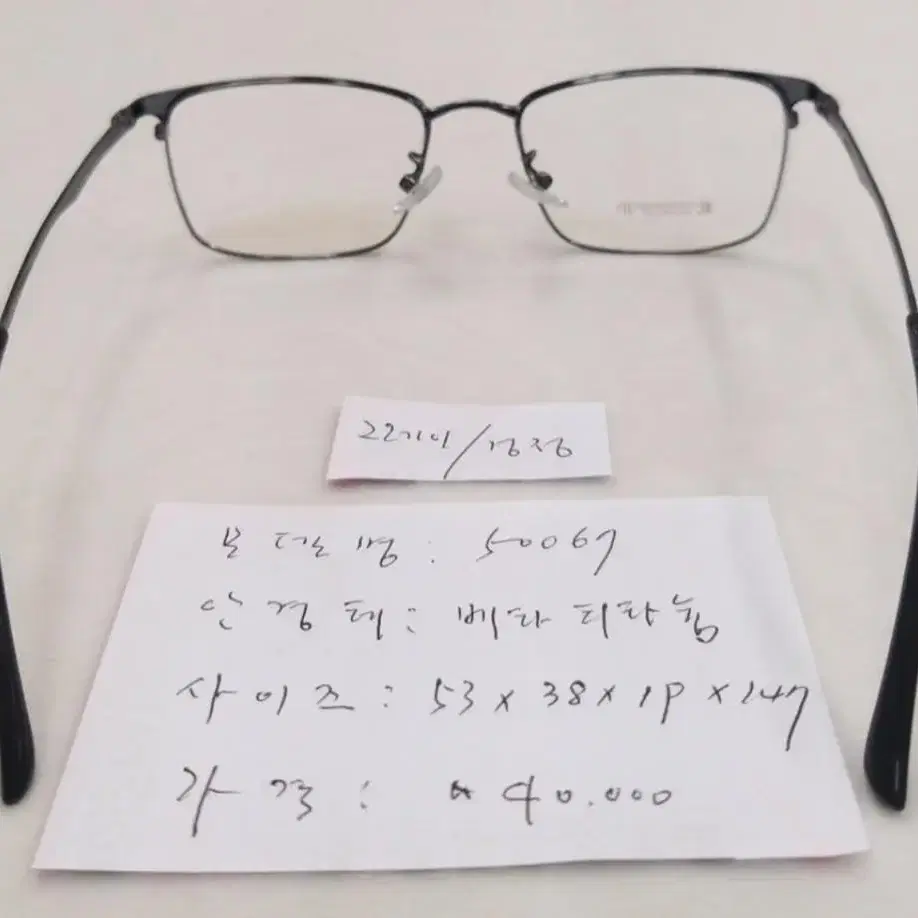 그레이/검정
모델명: 50067
안경테: 베타티타늄
사이즈: 53 x 38 x 19 x 147
가격: ₩40.000